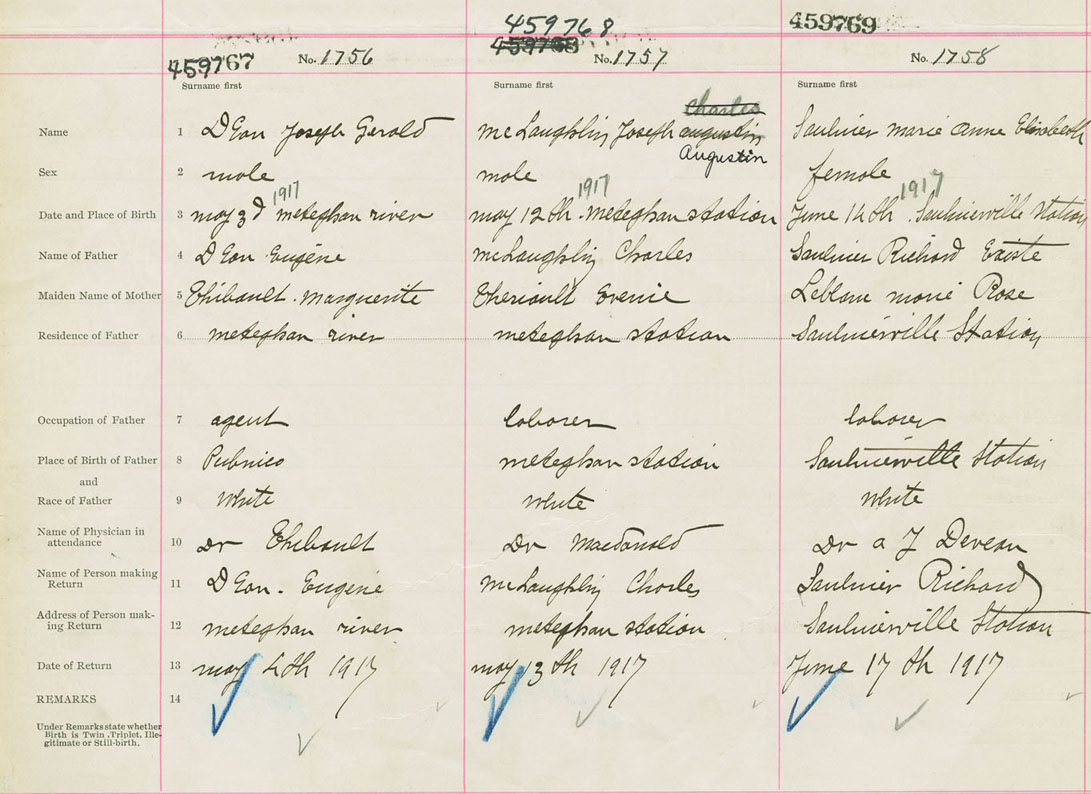 459768
459767 459768 459769
No. 1756 No. 1757 No. 1758
Surname first Surname first Surname first
Charles
Name 1 D Eon Joseph Gerald McLaughlin Joseph augustin Saulnier marie anne Elisabeth
Augustin
Sex 2 male male female
1917 1917 1917
Date and Place of Birth 3 may 3d meteghan river may 12th. meteghan station June 14th. Saulnierville Station
Name of Father 4 D Eon Eugène McLaughlin Charles Saulnier Richard Existe
Maiden Name of Mother 5 Thibault. Marguerite Theriault Evenie Leblanc marie Rose
Residence of Father 6 meteghan river meteghan station Saulnierville Station
Occupation of Father 7 agent laborer laborer
Place of Birth of Father 8 Pubnico meteghan station Saulnierville Station
and
Race of Father 9 White White White
Name of Physician in
attendance 10 Dr Thibault Dr Macdonald Dr a J Deveau
Name of Person making
Return 11 D Eon. Eugène McLaughlin Charles Saulnier Richard
Address of Person mak-
ing Return 12 meteghan river meteghan station Saulnierville Station
Date of Return 13 may 4th 1917 may 13th 1917 June 17th 1917
REMARKS 14
Under Remarks state whether
Birth is Twin, Triplet, Ille-
gitimate or Still-birth.